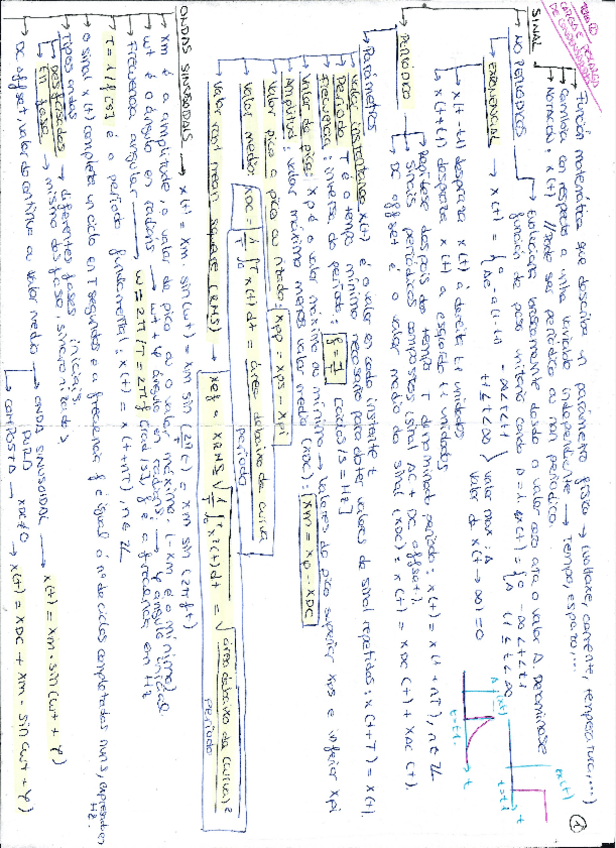 TEMA ①
SINAL
Función matemática que describe un parámetro físico → (voltaxe, corrente, temperatura, ...)
Cambia con respecto a unha variable independente → Tempo, espazo...
Notación: x(t) // Pode ser periódica ou non periódica.
NO PERIÓDICAS
EXPONENCIAL → x(t) =
valor max: A
valor de x(t→∞) = 0
x(t-t1) despraza x(t) á dereita t1 unidades
x(t+t1) despraza x(t) a esquerda t1 unidades
PERIÓDICO
Repítese despois do tempo T denominado período: x(t) = x(t+nT), n∈Z
Sinais periódicos compostos (sinal AC + DC offset).
DC offset é o valor medio do sinal (XDC): x(t) = XDC(t) + XAC(t).
Parámetros
Valor instantáneo x(t) é o valor en cada instante t
Período T é o tempo mínimo necesario para obter valores de sinal repetidos: x(t+T) = x(t).
Frecuencia: inversa do período: f = 1/T [ciclos/s = Hz]
Valor de pico: Xp é o valor máximo ou mínimo → valores de pico superior Xps e inferior Xpi
Amplitud: valor máximo menos valor medio (XDC): Xm = Xp - XDC
Valor pico a pico ou rizado: Xpp = Xps - Xpi
Valor medio: XDC = 1/T ∫₀ᵀ x(t)dt = área debaixo da curva / período
Valor root mean square (RMS) → Xef = XRMS √ 1/T ∫₀ᵀ x²(t)dt = √ área debaixo da (curva)² / período
ONDAS SINUSOIDAIS → x(t) = Xm · sin(wt) = Xm sin (2π/T t) = Xm sin (2πft)
Xm é a amplitude, o valor de pico ou o valor máximo. (-Xm é o mínimo)
wt é o ángulo en radiáns → wt + φ ángulo en radiáns → φ ángulo inicial.
Frecuencia angular → w = 2π/T = 2πf [rad/s], f é a frecuencia en Hz
T = 1/f [s] é o período fundamental: x(t) = x(t+nT), n∈Z
O sinal x(t) completa un ciclo en T segundos e a frecuencia f é igual ó nº de ciclos completados nun s, expresada en Hz.
Tipos ondas
Desfasadas → diferentes fases iniciais.
En fase → mismo desfase, sincronizadas
DC offset valor do continua ou valor medio → ONDA SINUSOIDAL PURA → x(t) = Xm · sin(wt + φ)
COMPOSTA XDC≠0 → x(t) = XDC + Xm · sin(wt + φ)